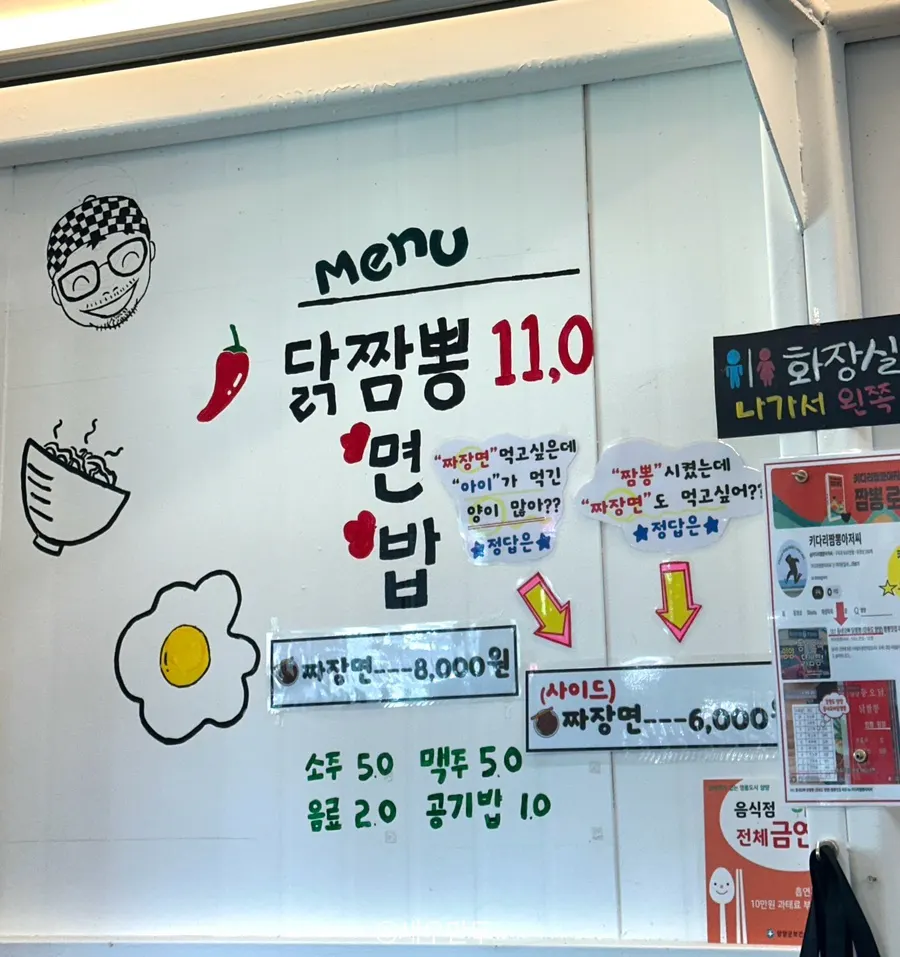 Menu
닭짬뽕 11,0
면
밥
"짜장면"먹고싶은데
"아이"가 먹긴
양이 많아??
★정답은★
"짬뽕"시켰는데
"짜장면"도 먹고싶어??
★정답은★
짜장면---8,000원
(사이드)
짜장면---6,000
소주 5.0 맥주 5.0
음료 2.0 공기밥 1.0
화장실
나가서 왼쪽
짬뽕
키다리짬뽕아저씨
음식점
전체금연
흡연
10만원 과태료